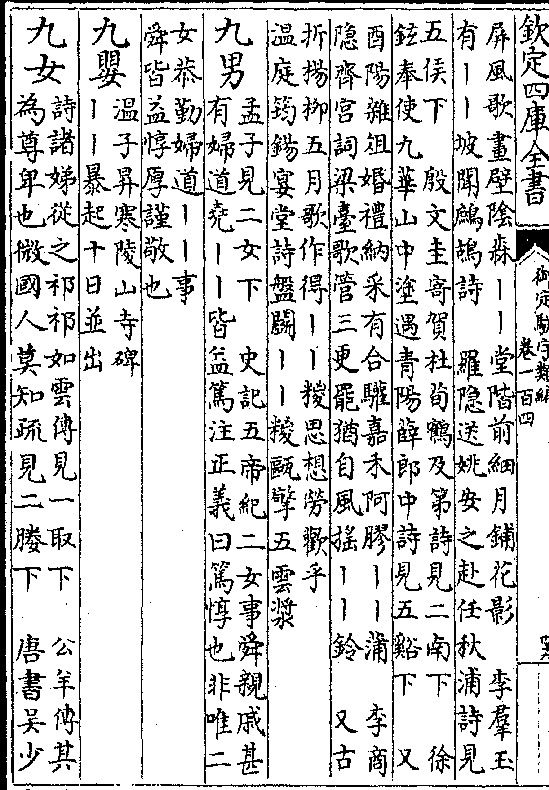 欽定四庫全書
御定駢字類編
卷一百四
屏風歌畫壁陰森丨丨堂階前細月鋪花影 李羣玉
有丨丨坡聞鷓鴣詩 羅隐送姚安之赴任秋浦詩見
五侯下 殷文圭寄賀杜荀鶴及第詩見二南下 徐
鉉奉使九華山中塗遇青陽薛郎中詩見五谿下 又
酉陽雜俎婚禮納采有合驩嘉禾阿膠丨丨蒲 李商
隐齊宮詞梁臺歌管三更罷猶自風揺丨丨鈴 又古
折揚柳五月歌作得丨丨糉思想勞歡乎
温庭筠錫宴堂詩盤鬭丨丨糉甌擎五雲漿
九男
孟子見二女下 史記五帝紀二女事舜親戚甚
有婦道堯丨丨皆益篤注正義曰篤惇也非唯二
女恭勤婦道丨丨事
舜皆益惇厚謹敬也
九嬰
温子昇寒陵山寺碑
丨丨暴起十日並出
九女
詩諸娣從之祁祁如雲傳見一取下 公羊傳其
為尊卑也微國人莫知疏見二媵下 唐書吳少